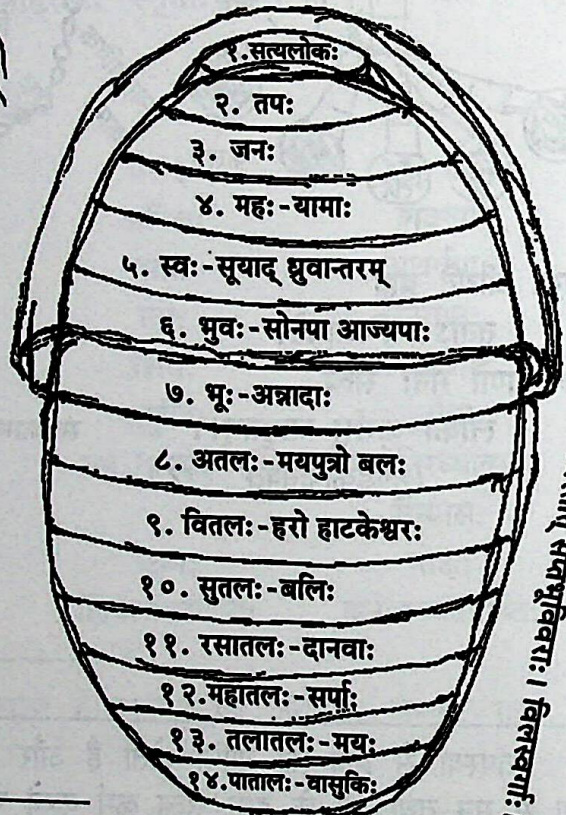 १.सत्यलोकः
२. तपः
३. जनः
४. महः-यामाः
५. स्वः-सूयाद् ध्रुवान्तरम्
६. भुवः-सोनपा आज्यपाः
७. भूः-अन्नादाः
८. अतलः-मयपुत्रो बलः
९. वितलः-हरो हाटकेश्वरः
१०. सुतलः-बलिः
११. रसातलः-दानवाः
१२.महातलः-सर्पाः
१३. तलातलः-मयः
१४.पातालः-वासुकिः
सप्तभूविवराः । विलस्वर्गाः ।